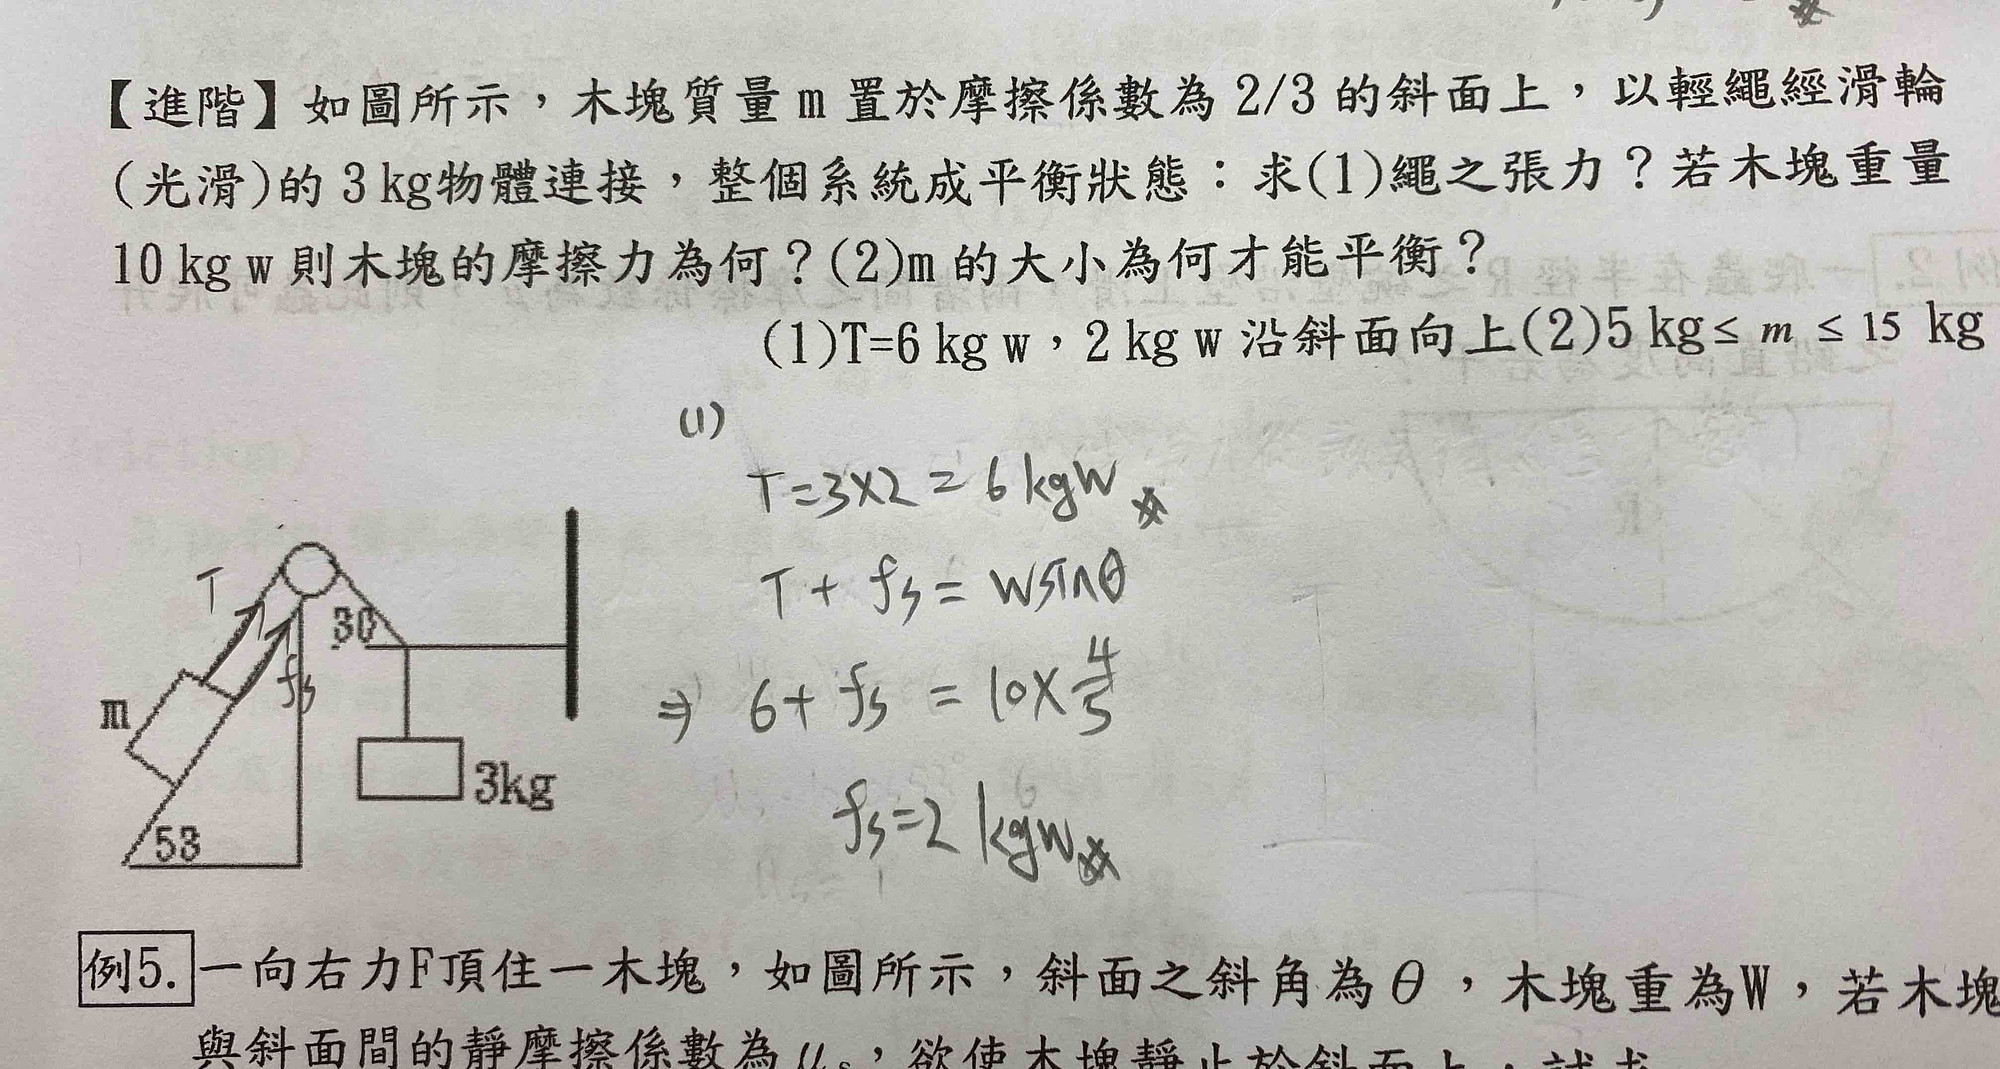 【進階】如圖所示，木塊質量 m 置於摩擦係數為 2/3 的斜面上，以輕繩經滑輪
(光滑)的 3 kg物體連接，整個系統成平衡狀態：求(1)繩之張力？若木塊重量
10 kg w 則木塊的摩擦力為何？(2)m 的大小為何才能平衡？
(1)T=6 kg w，2 kg w 沿斜面向上(2)5 kg ≤ m ≤ 15 kg
(1)
T=3×2 = 6 kgw
T + fs = Wsinθ
⇒ 6 + fs = 10×4/5
fs=2 kgw
T
30
fs
m
3kg
53
例5. 一向右力F頂住一木塊，如圖所示，斜面之斜角為θ，木塊重為W，若木塊
與斜面間的靜摩擦係數為μs，欲使木塊靜止於斜面上，試求